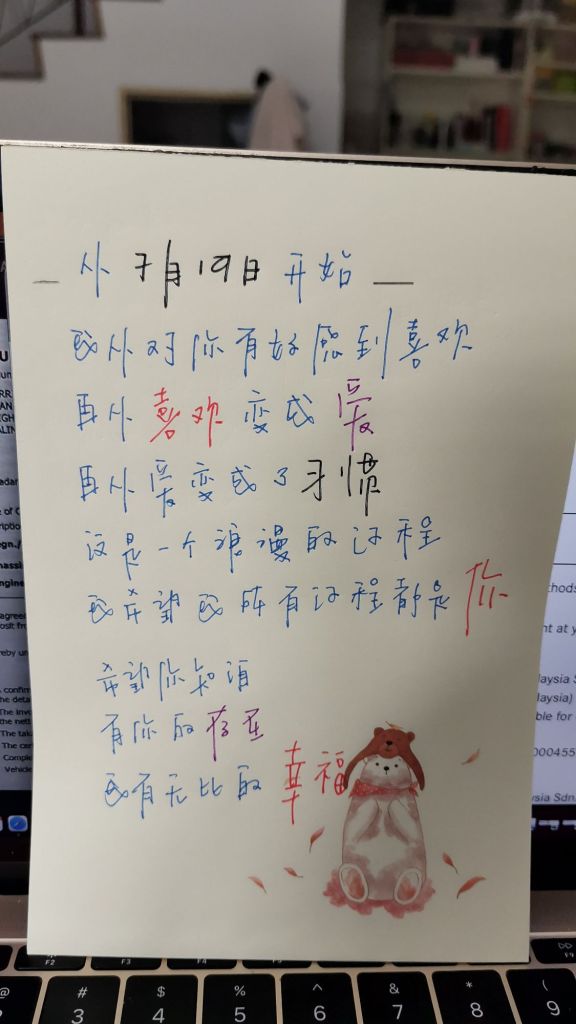 — 从 7月19日 开始 —
我从对你有好感到喜欢
再从喜欢变成爱
再从爱变成了习惯
这是一个浪漫的过程
我希望我所有过程都是你
希望你知道
有你的存在
我有无比的幸福
F2
F3
F4
F5
F6
F7
F8
F9
@
#
3
$
4
%
5
^
6
&
7
*
8
(
9